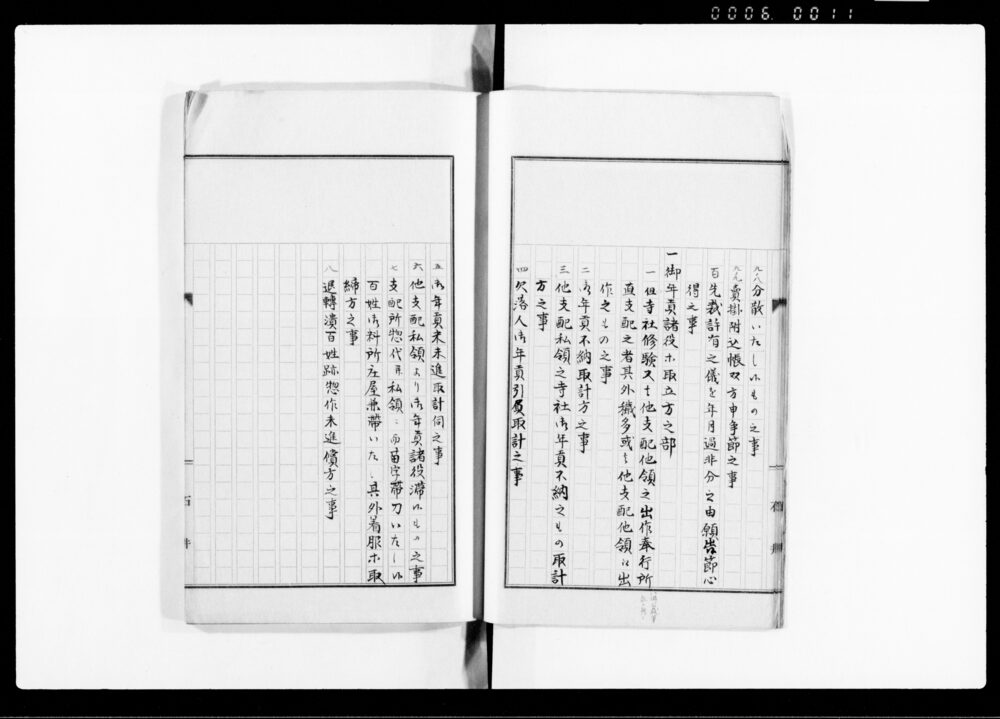 0006.0011
九八 分散いたし候もの之事
九九 賣掛附込帳双方申争節之事
百 先裁許有之儀を年月過非分之由願出節心
得之事
一 御年貢諸役ホ取立方之部
一 但寺社修験又ハ他支配他領之出作奉行所
直支配之者其外穢多或ハ他支配他領ゟ出
作之もの之事
二 御年貢不納取計方之事
三 他支配私領之寺社御年貢不納之もの取計
方之事
四 欠落人御年貢引負取計之事
五 御年貢米未進取計伺之事
六 他支配私領より御年貢諸役滞候もの之事
七 支配所惣代共私領ニ而苗字帯刀いたし候
百姓御料所庄屋兼帯いたし其外着服ホ取
締方之事
八 退轉潰百姓跡惣作未進償方之事
石井